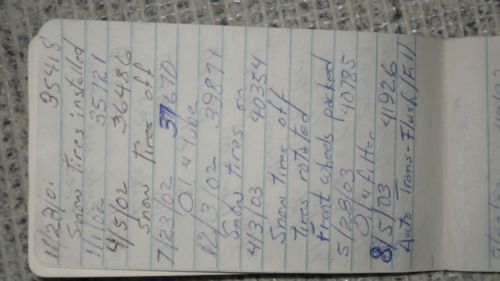 11/22/01 35418
Snow Tires installed
1/1/02 35721
4/5/02 36486
Snow Tires off
7/23/02 37670
Oil & Lube
12/3/02 39871
Snow Tires on
4/3/03 40354
Snow Tires off
Tires rotated
Front wheels packed
5/28/03 40785
Oil & Filter
8/5/03 41926
Auto Trans-Flush/Fill